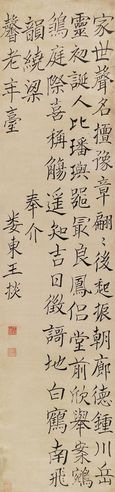 家世聲名擅豫章翩〻後起振朝廊德鍾川岳
靈初誕人比璠璵器最良鳳侶堂前欣舉案鵷
鶵庭際喜稱觴遥知吉日徵謌地白鶴南飛
韻繞梁 奉介
馨老年臺 婁東王掞